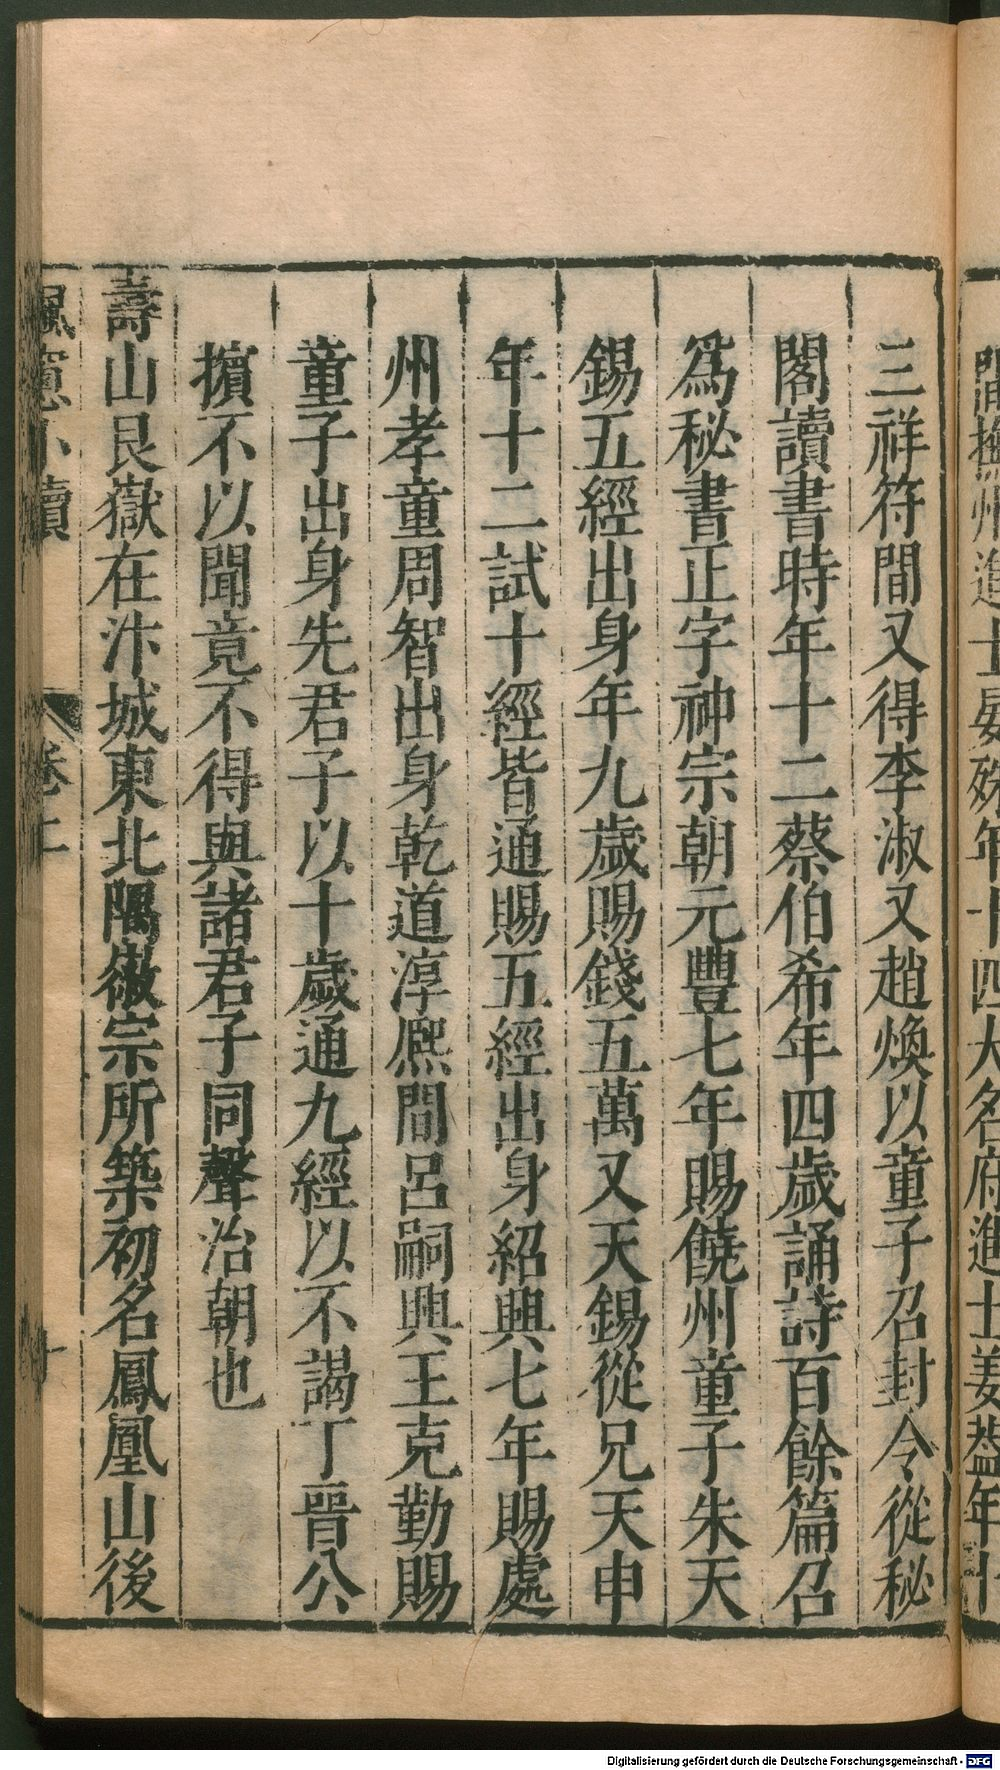 間撫州進士晏殊年十四大名府進士姜蓋年十
三祥符間又得李淑又趙煥以童子召封令從秘
閣讀書時年十二蔡伯希年四歲誦詩百餘篇召
爲秘書正字神宗朝元豐七年賜饒州童子朱天
錫五經出身年九歲賜錢五萬又天錫從兄天申
年十二試十經皆通賜五經出身紹興七年賜處
州孝童周智出身乾道淳熈間呂嗣興王克勤賜
童子出身先君子以十歲通九經以不謁丁晉公
擯不以聞竟不得與諸君子同聲治朝也
壽山艮嶽在汴城東北隅徽宗所築初名鳳凰山後
楓窻小牘
卷上
Digitalisierung gefördert durch die Deutsche Forschungsgemeinschaft - DFG